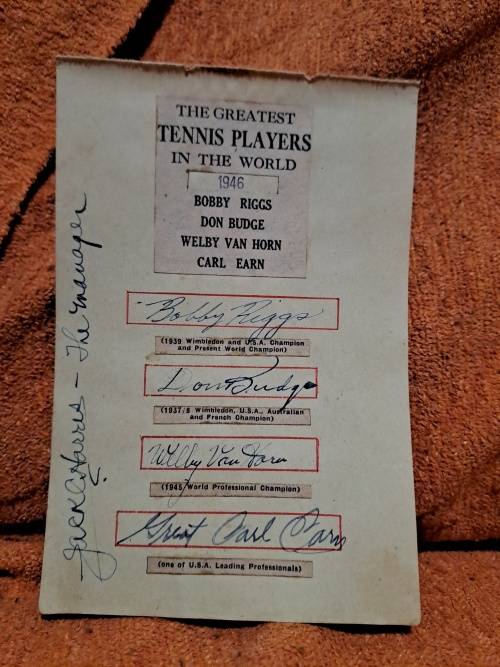 THE GREATEST
TENNIS PLAYERS
IN THE WORLD
1946
BOBBY RIGGS
DON BUDGE
WELBY VAN HORN
CARL EARN
Bobby Riggs
(1939 Wimbledon and U.S.A. Champion
and Present World Champion)
Don Budge
(1937/8 Wimbledon, U.S.A., Australian
and French Champion)
Welby Van Horn
(1945 World Professional Champion)
Great Carl Earn
(one of U.S.A. Leading Professionals)
Jack Harris - The manager